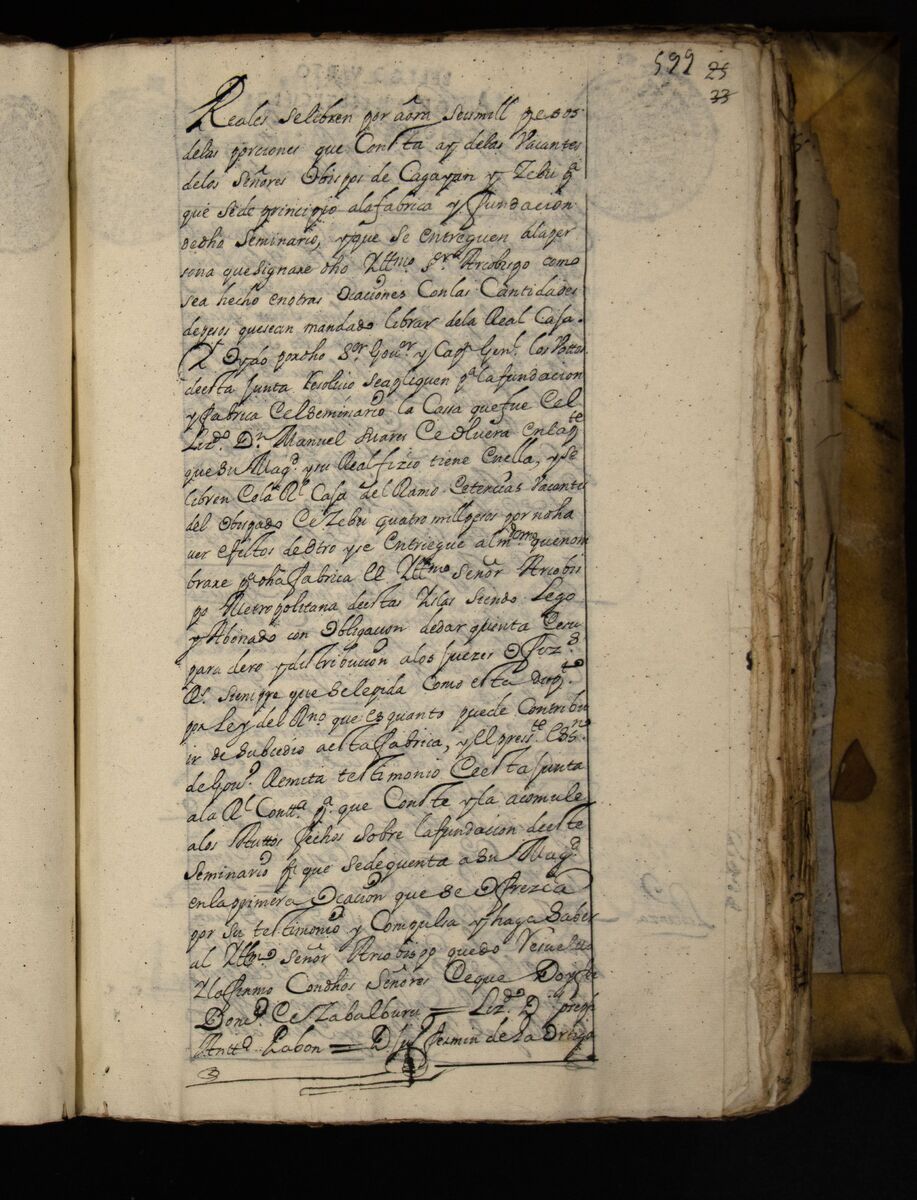 599 25
33
Reales se libren por aõra seis mill pesos
delas porciones que Consta ay delas Vacantes
delos Señores Obispos de Cagayan y Zebu pª
que sede principio alafabrica y fundacion
dedho Seminario, yque se entreguen alaper
sona que signare dho Yllmo Sr Arcobispo como
sea hecho enotras Ocaciones Conlas Cantidades
depesos quesean mandado librar dela Real Casa.
Y Oydo pordho Sor Govor y Capn Genl los Vottos
decsta Junta Resolvio seapliquen pª la fundacion
y fabrica Cel Seminario la Cassa que fue Cel
Lizdo Dn Manuel Suares Ce Olivera Enlapte
que Su Magd y su Real fizco tiene Enella, y se
libren Cela Rl Casa del Ramo Cetencias Vacante
del Obispado Ce Zebu quatro mill pesos por noha
ver efectos de Otro y se Entriegue al mrdomo quenom
braxe pª dha fabrica El Yllmo Señor Arcobis
po Metropolitana decstas Yslas Siendo Lego
y Abonado con Obligacion dedar quenta Cesu
paradero y distribucion alos Juezes Ofizs
Rs siempre que Selepida como esta dispto
por Ley del Rno que es quanto puede Contribu
ir de Subcedio aesta fabrica, y El preste Essno
de Govo Remita testimonio Cesta Junta
ala Rl Contta pª que Conste y la acomule
alos Auttos fechos sobre lafundacion deeste
Seminario pª que sedequenta a Su Magd
enlaprimera Ocacion que se Ofrezca
por Su testimonio y Compulsa y haga Saber
al Yllmo Señor Arcobispo quedo Resuelto
Ylo firmo Condhos Señores Ceque Doy fee
Domo Ce Zabalburu = Lizdo Dn
Antto Pabon = D Juº fermin de la